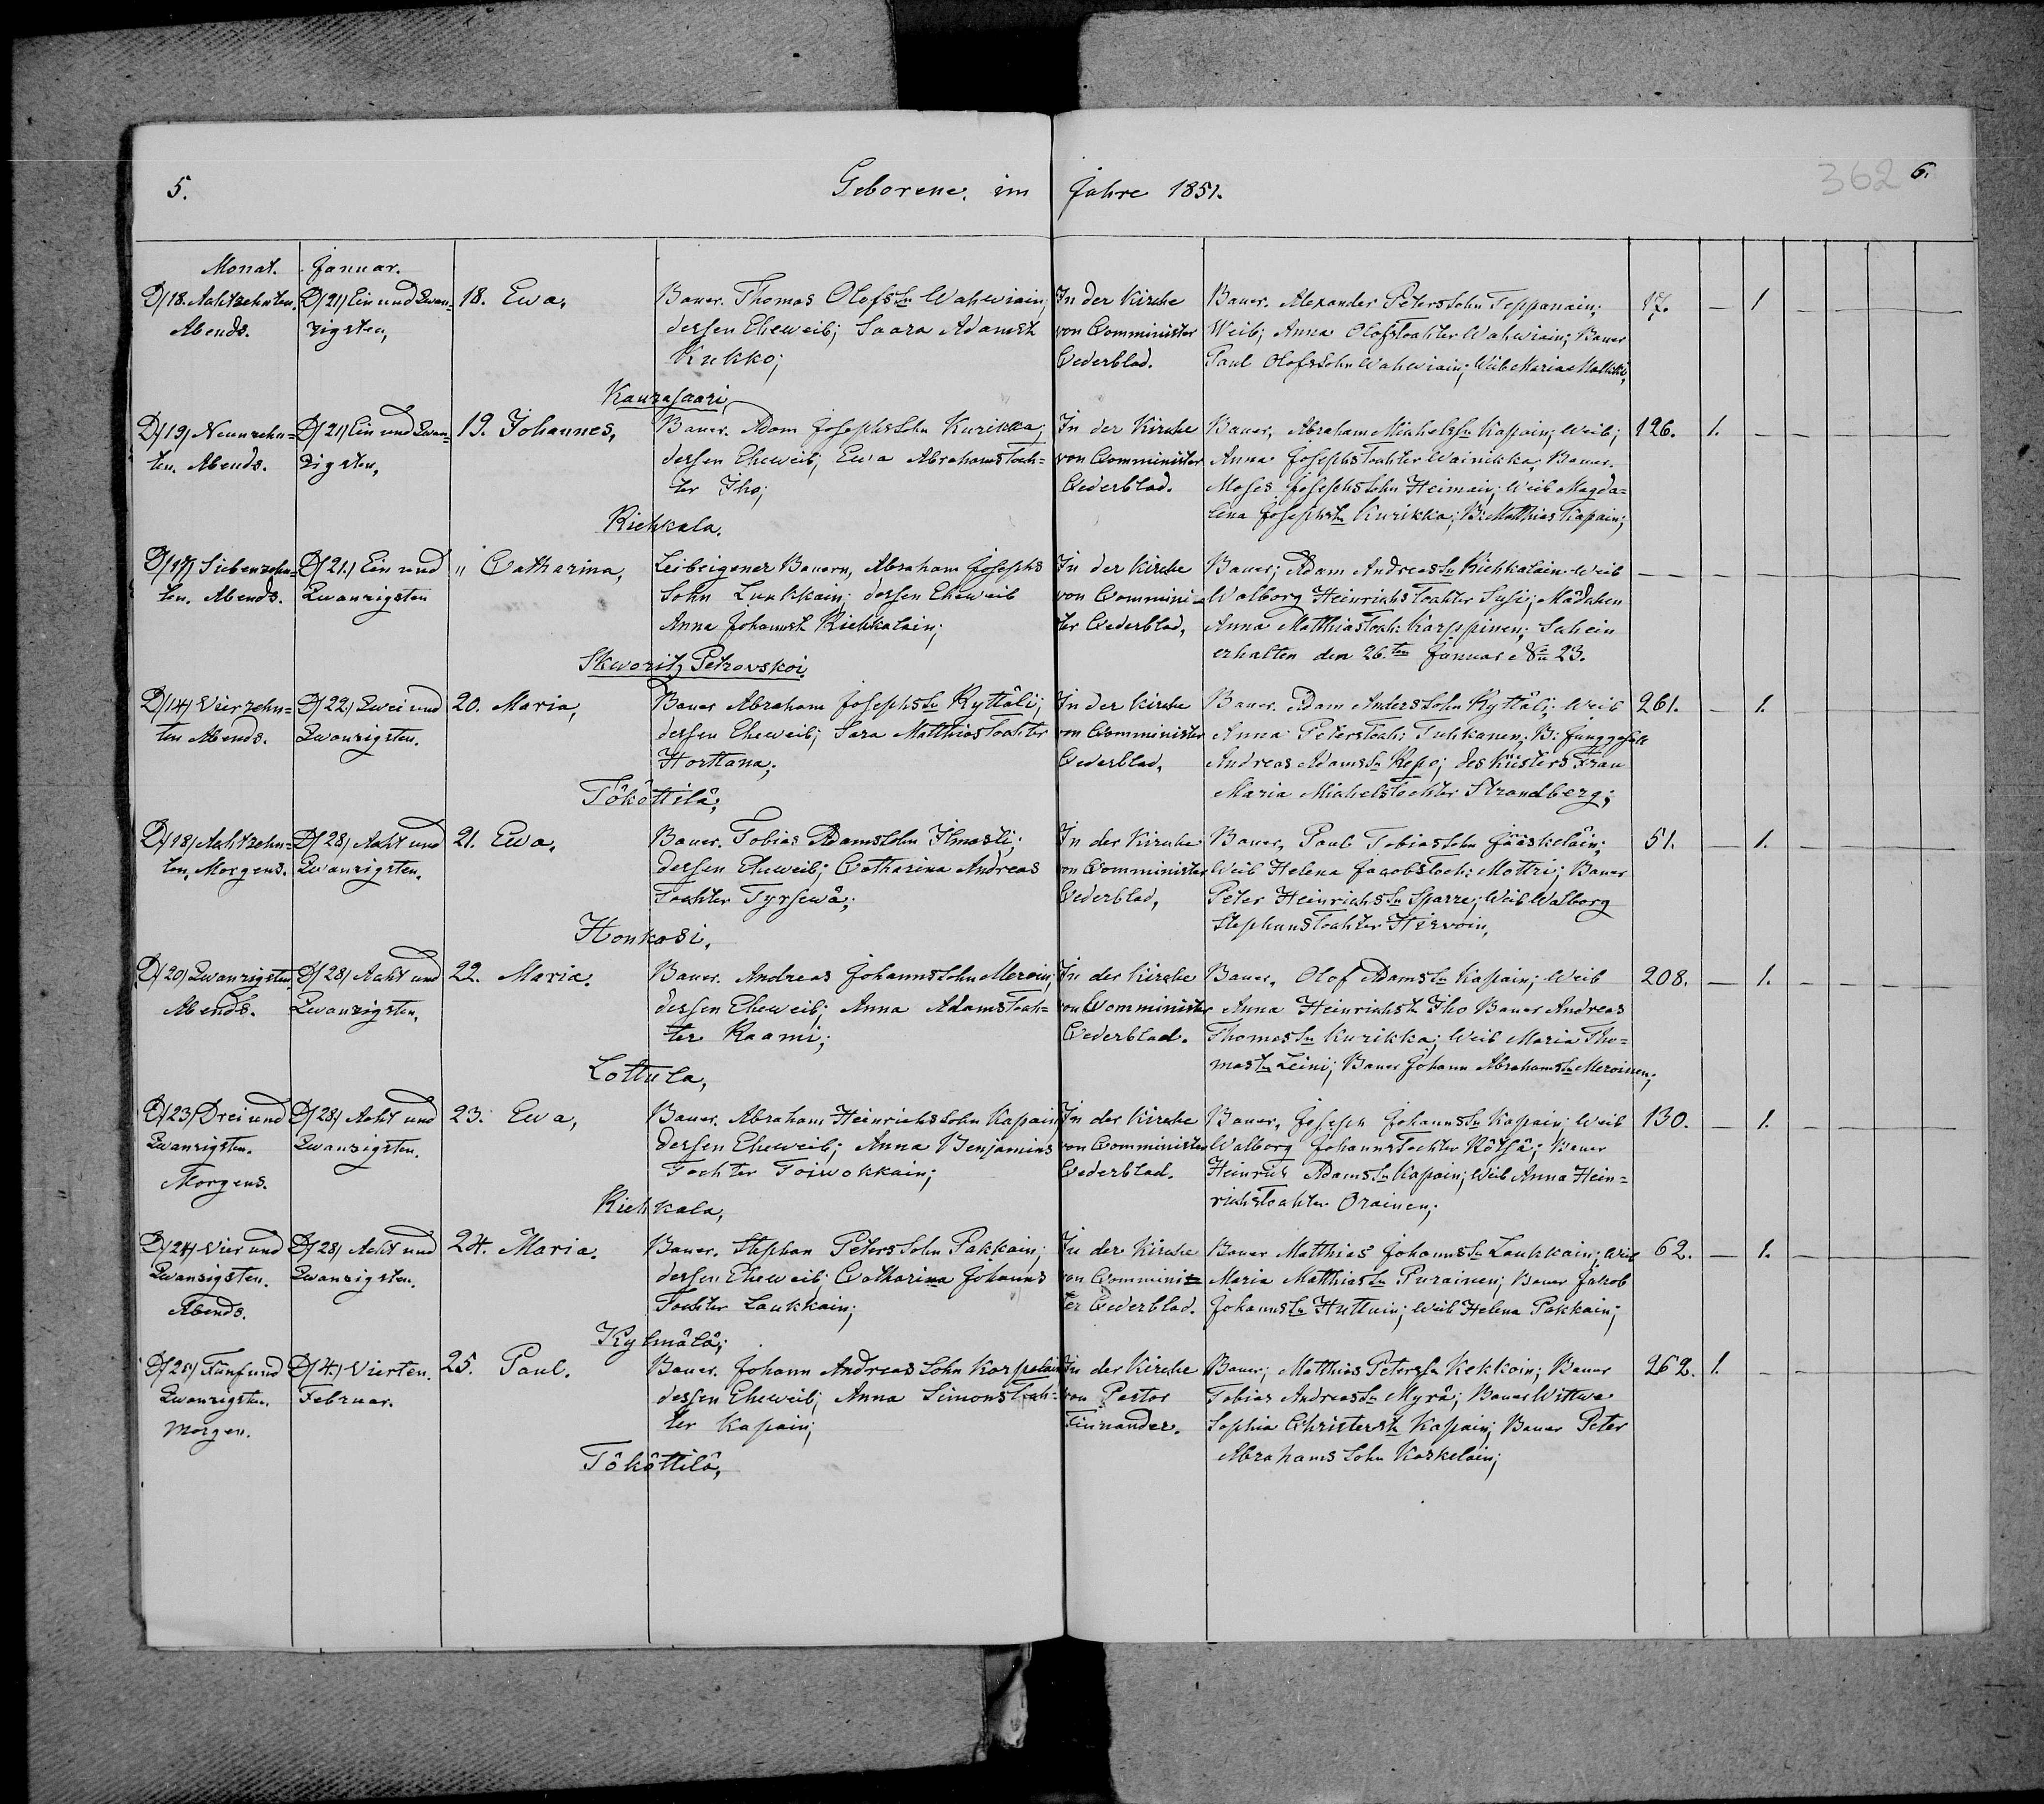 5.
Geborene im Jahre 1851.
362 6.
Monat. Januar.
D/18. Achtzehnten
Abends.
D/21) Ein und Zwan=
zigsten,
18. Ewa,
Bauer. Thomas Olofs Sn Wahwiain,
dessen Eheweib; Saara Adamst
Kukko;
Kaurasaari,
In der Kirche
von Comminister
Cederblad.
Bauer. Alexander Peterssohn Teppanain;
Weib; Anna Olofstochter Wahwiain; Bauer
Paul Olofssohn Wahwiain; Weib Maria
17. — 1 — — — —
D/19) Neunzehn=
ten. Abends.
D/21) Ein und Zwan=
zigsten,
19. Johannes,
Bauer. Adam Josephssohn Kurikka;
dessen Eheweib; Ewa Abrahamstoch=
ter Iho;
Riehkala.
In der Kirche
von Comminister
Cederblad.
Bauer, Abraham Michelssn Kapain; Weib;
Anna Josephstochter Wainikka, Bauer.
Moses Josephssohn Heimain; Weib Magda=
lena Josephstn Kurikka; B: Matthias Kapain;
126. 1. — — — — —
D/17) Siebenzehn=
ten. Abends.
D/21.) Ein und
Zwanzigsten
" Catharina,
Leibeigener Bauern, Abraham Josephs
Sohn Lunkkain; dessen Eheweib
Anna Johannst Riehkalain;
Skworitz Petrovskoi.
In der Kirche
von Commini=
ter Cederblad,
Bauer; Adam Andreas Sn Riehkalain Weib
Walborg Heinrichstochter Susi; Mädchen
Anna Matthiastoch: Karppinen; Schein
erhalten den 26.ten Januar No 23.
— — — — — — —
D/14) Vierzehn=
ten Abends.
D/22) Zwei und
Zwanzigsten.
20. Maria,
Bauer Abraham Josephssn Kyttälä;
dessen Eheweib; Sara Matthiastochter
Horttana;
Tököttilä;
In der Kirche
von Comminister
Cederblad,
Bauer. Adam Anderssohn Kyttälä; Weib
Anna Peterstoch: Tuhkanen; B: Junggesell
Andreas Adamssn Repo; des Küsters Frau
Maria Michelstochter Strandberg;
261. — 1. — — — —
D/18) Achtzehn=
ten, Morgens.
D/28) Acht und
Zwanzigsten.
21. Ewa,
Bauer. Tobias Adamssohn Ilmasti;
dessen Eheweib; Catharina Andreas
Tochter Tyrsewä;
Honkasi,
In der Kirche
von Comminister
Cederblad,
Bauer, Paul Tobiassohn Jääskeläin;
Weib Helena Jacobstoch: Mottri; Bauer
Peter Heinrichssn Sparre; Weib Walborg
Stephanstochter Hirvoin,
51. — 1. — — — —
D/20) Zwanzigsten
Abends.
D/28) Acht und
Zwanzigsten,
22. Maria.
Bauer. Andreas Johannssohn Meroin,
dessen Eheweib; Anna Adamstoch=
ter Raami;
Lottula,
In der Kirche
von Comminister
Cederblad.
Bauer, Olof Adamssn Kapain; Weib
Anna Heinrichst Iho Bauer Andreas
Thomassn Kurikka; Weib Maria Tho=
mastn Leini; Bauer Johann Abrahamssn Meroinen;
208. — 1. — — — —
D/23) Drei und
Zwanzigsten.
Morgens.
D/28) Acht und
Zwanzigsten.
23. Ewa,
Bauer. Abraham Heinrichssohn Kapain
dessen Eheweib; Anna Benjamins
Tochter Toiwokkain;
Riehkala,
In der Kirche
von Comminister
Cederblad.
Bauer, Joseph Johannssn Kapain; Weib
Walborg Johannstochter Rötsä; Bauer
Heinrich Adamssn Kapain; Weib Anna Hein=
richstochter Orainen;
130. — 1. — — — —
D/24) Vier und
Zwanzigsten.
Abends.
D/28) Acht und
Zwanzigsten.
24. Maria.
Bauer. Stephan Peterssohn Pakkain;
dessen Eheweib; Catharina Johanns
Tochter Laukkain;
Kylmälä;
In der Kirche
von Commini=
ter Cederblad.
Bauer Matthias Johannssn Laukkain; Weib
Maria Matthiastn Purainen; Bauer Jacob
Johannssn Huttuin; Weib Helena Pakkain;
62. — 1. — — — —
D/25) Fünf und
Zwanzigsten.
Morgen.
D/4.) Vierten.
Februar.
25. Paul.
Bauer. Johann Andreassohn Korpelain
dessen Eheweib; Anna Simonstoch=
ter Kapain;
Tököttilä,
In der Kirche
von Pastor
Finnander.
Bauer; Matthias Peterssn Kekkoin; Bauer
Tobias Andreassn Myrä; Bauer Wittwe
Sophia Christerst Kapain; Bauer Peter
Abrahams Sohn Koskelain;
262. 1. — — — — —